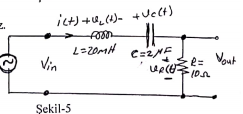 2.
i(t) + vL(t) -
+ vc(t)
L=20mH
C=2µF
Vin
+ vR(t) -
R=
10Ω
Vout
Şekil-5